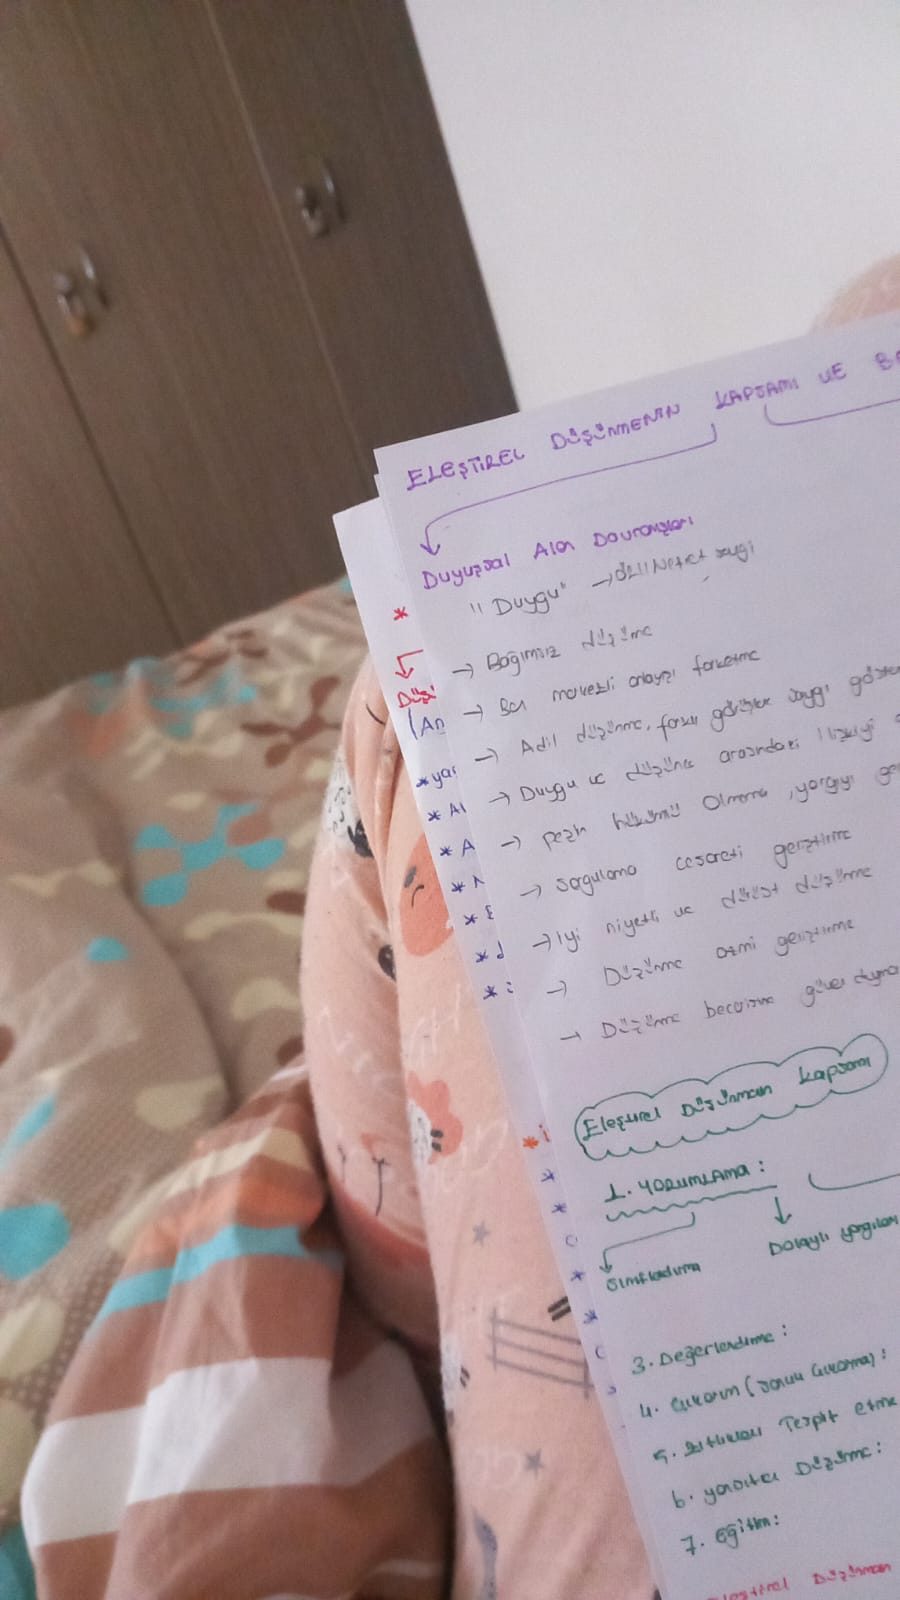 ELEŞTİREL DÜŞÜNMENİN KAPSAMI VE BA
Duyuşsal Alan Davranışları
"Duygu" → Nefret sevgi
→ Bağımsız düşünme
→ Ben merkezli anlayışı farketme
→ Adil düşünme, farklı görüşlere saygı göster
→ Duygu ve düşünce arasındaki ilişkiyi
→ peşin hükümlü Olmama, yargıyı
→ Sorgulama cesareti geliştirme
→ iyi niyetli ve dürüst düşünme
→ Düşünme azmi geliştirme
→ Düşünme becerisine güven duyma
Eleştirel Düşünmenin Kapsamı
1. YORUMLAMA:
Sınıflandırma
Dolaylı yargıları
3. Değerlendirme:
4. Çıkarım (Sonuç Çıkarma):
5. Tespit etme
6. yaratıcı Düşünme:
7. Eğitim:
Eleştirel Düşünmenin
* 
Düşü
(An
* yar
* Al
* A
* i